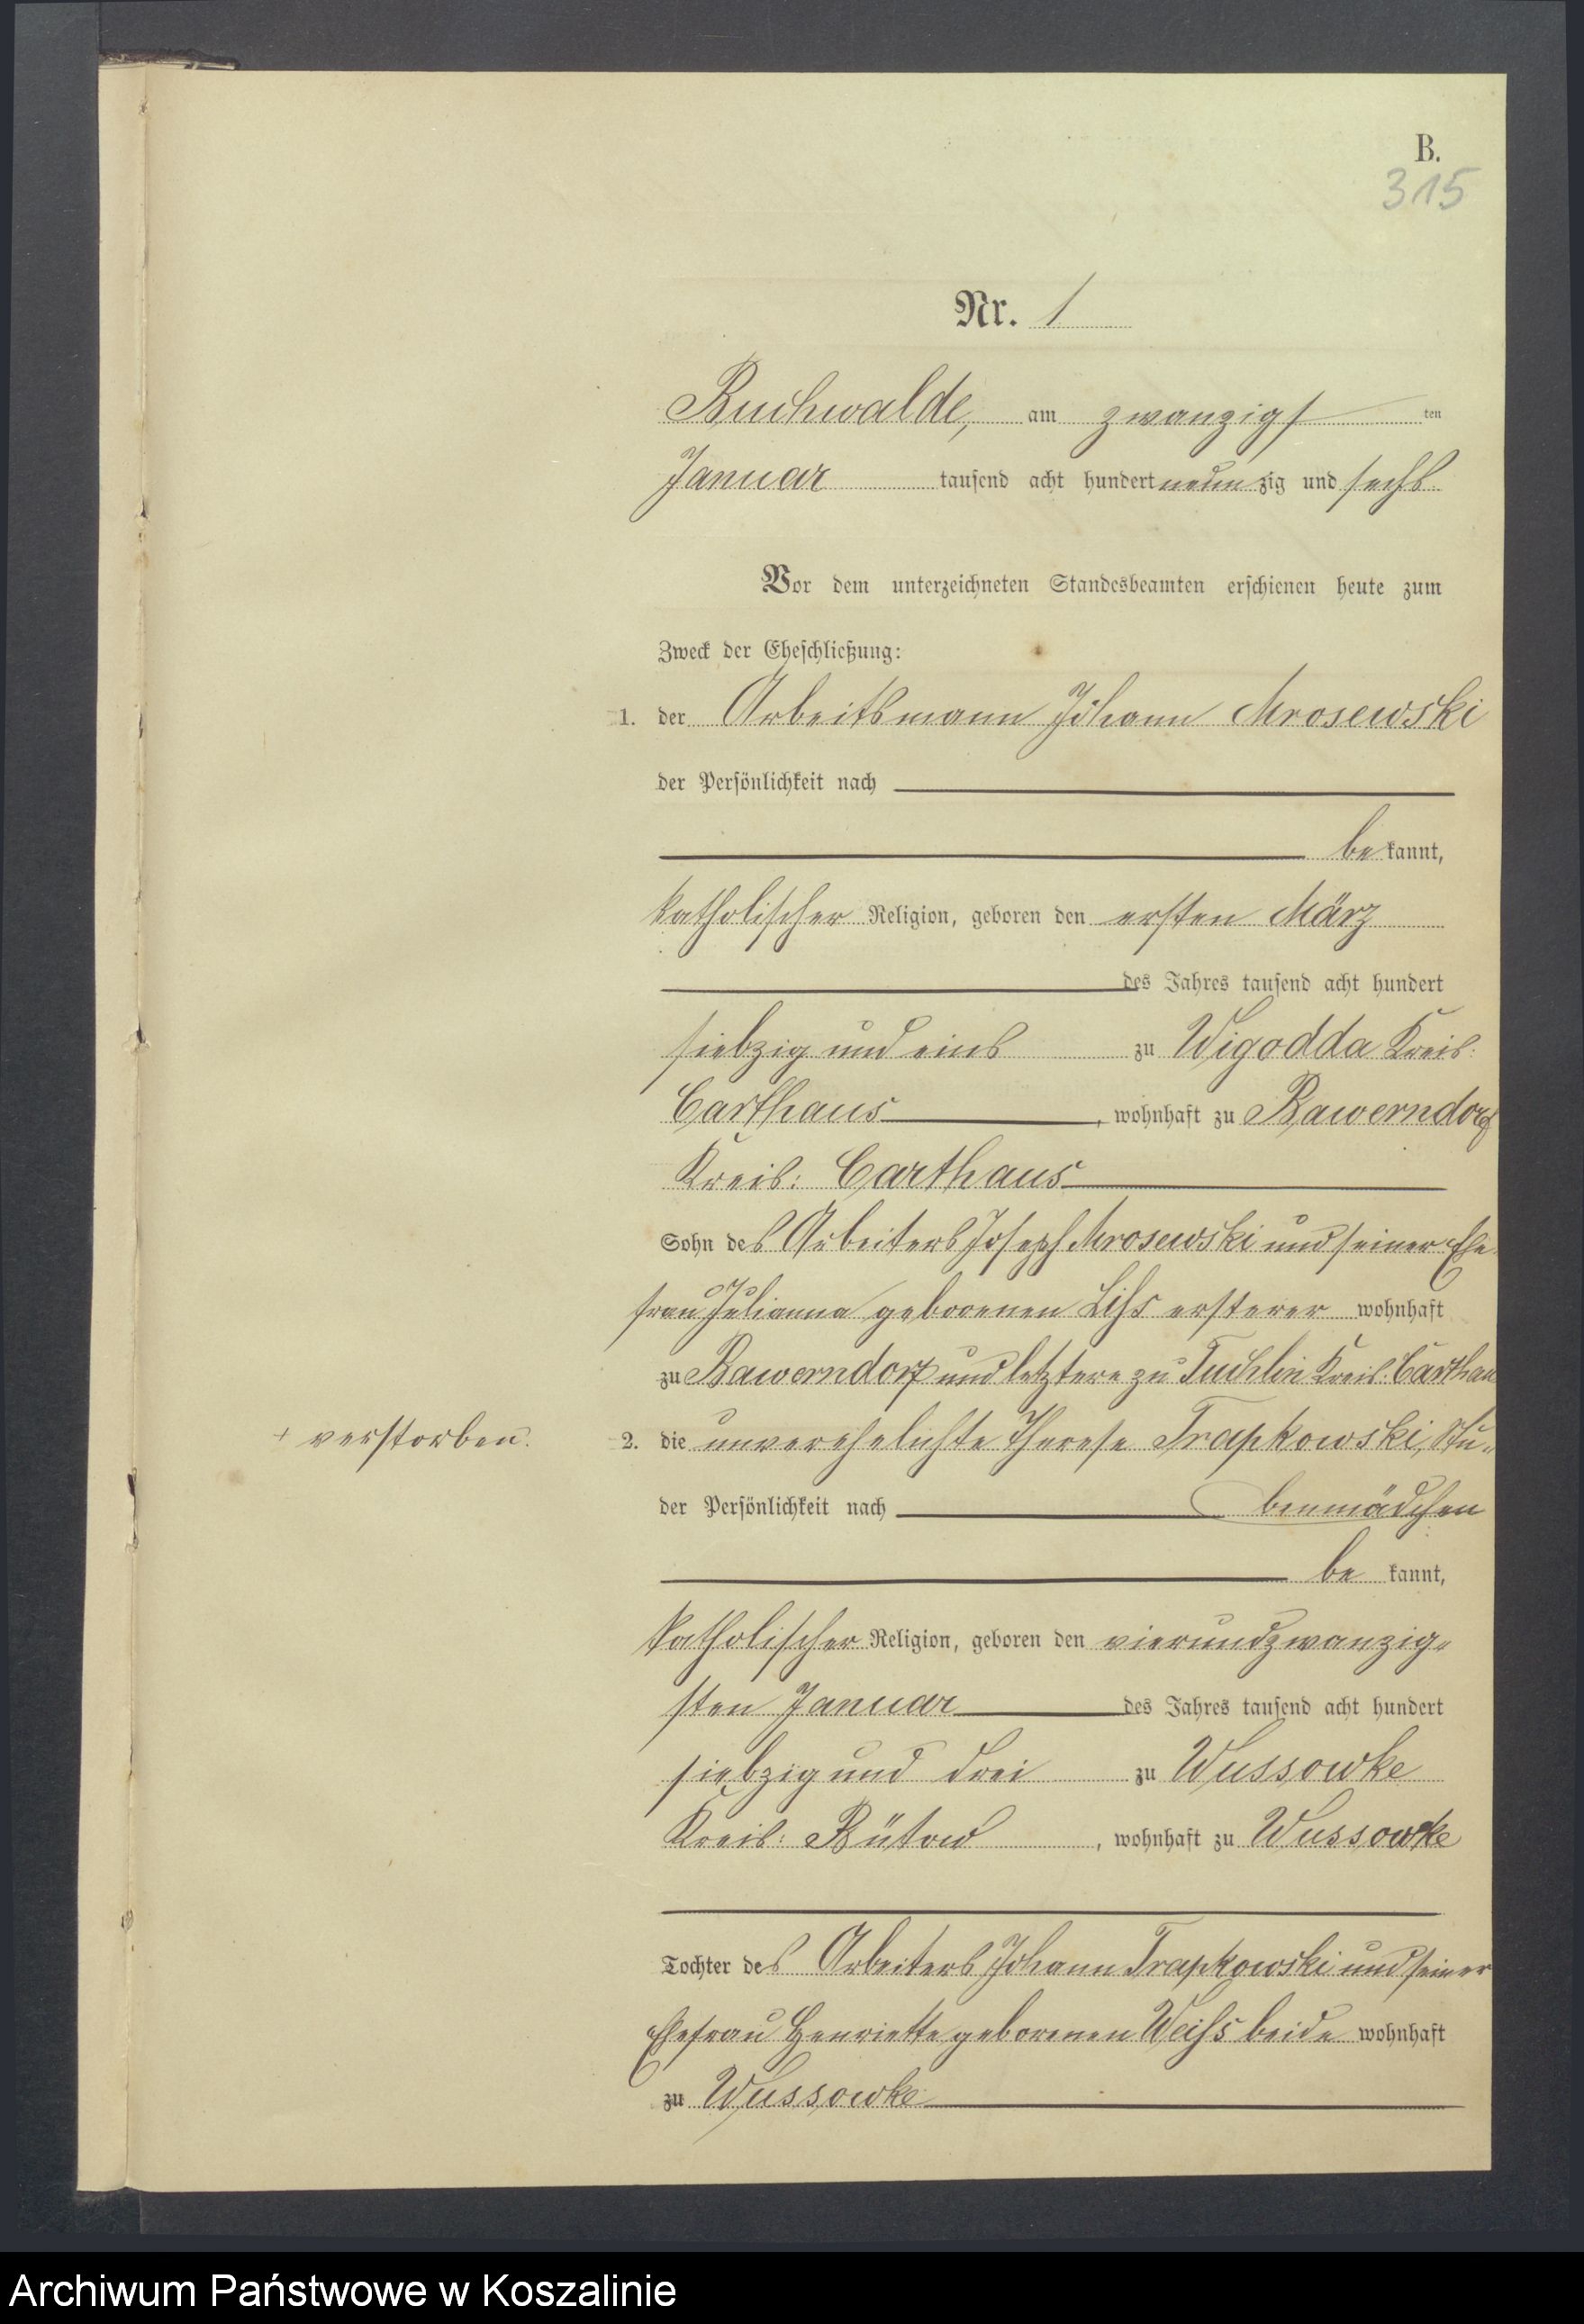 B.
315
Nr. 1
Buchwalde, am zwanzigsten
Januar tausend acht hundert neunzig und sechs
Vor dem unterzeichneten Standesbeamten erschienen heute zum
Zweck der Eheschließung:
1. der Arbeitsmann Johann Mrosewski
der Persönlichkeit nach
be kannt,
katholischer Religion, geboren den ersten März
des Jahres tausend acht hundert
siebzig und eins zu Wigodda Kreis:
Carthaus, wohnhaft zu Bawerndorf
Kreis: Carthaus
Sohn des Arbeiters Joseph Mrosewski und seiner Ehe
frau Julianna geborenen ersterer wohnhaft
zu Bawerndorf und letztere zu Tuchlin Kreis: Carthau
+ verstorben.
2. die unverehelichte Therese Trapkowski, Stu-
der Persönlichkeit nach benmädchen
be kannt,
katholischer Religion, geboren den vierundzwanzig-
sten Januar des Jahres tausend acht hundert
siebzig und drei zu Wussowke
Kreis: Bütow, wohnhaft zu Wussowke
Tochter des Arbeiters Johann Trapkowski und seiner
Ehefrau Henriette geborenen Weiss beide wohnhaft
zu Wussowke
Archiwum Państwowe w Koszalinie